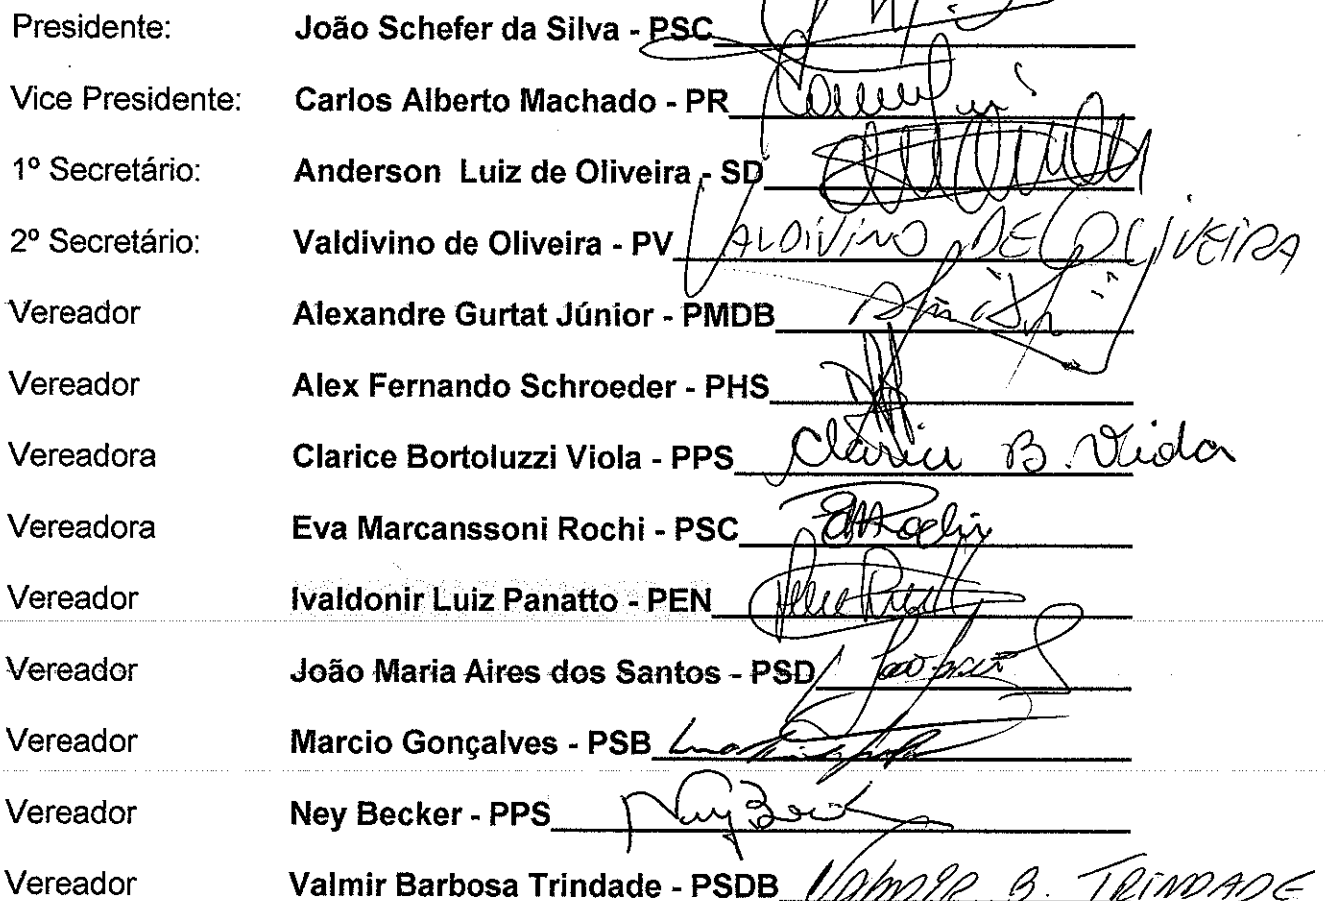 Presidente: João Schefer da Silva - PSC
Vice Presidente: Carlos Alberto Machado - PR
1º Secretário: Anderson Luiz de Oliveira - SD
2º Secretário: Valdivino de Oliveira - PV VALDIVINO DE OLIVEIRA
Vereador Alexandre Gurtat Júnior - PMDB
Vereador Alex Fernando Schroeder - PHS
Vereadora Clarice Bortoluzzi Viola - PPS Clarice B. Viola
Vereadora Eva Marcanssoni Rochi - PSC
Vereador Ivaldonir Luiz Panatto - PEN
Vereador João Maria Aires dos Santos - PSD
Vereador Marcio Gonçalves - PSB
Vereador Ney Becker - PPS Ney Beck
Vereador Valmir Barbosa Trindade - PSDB Valmir B. TRINDADE